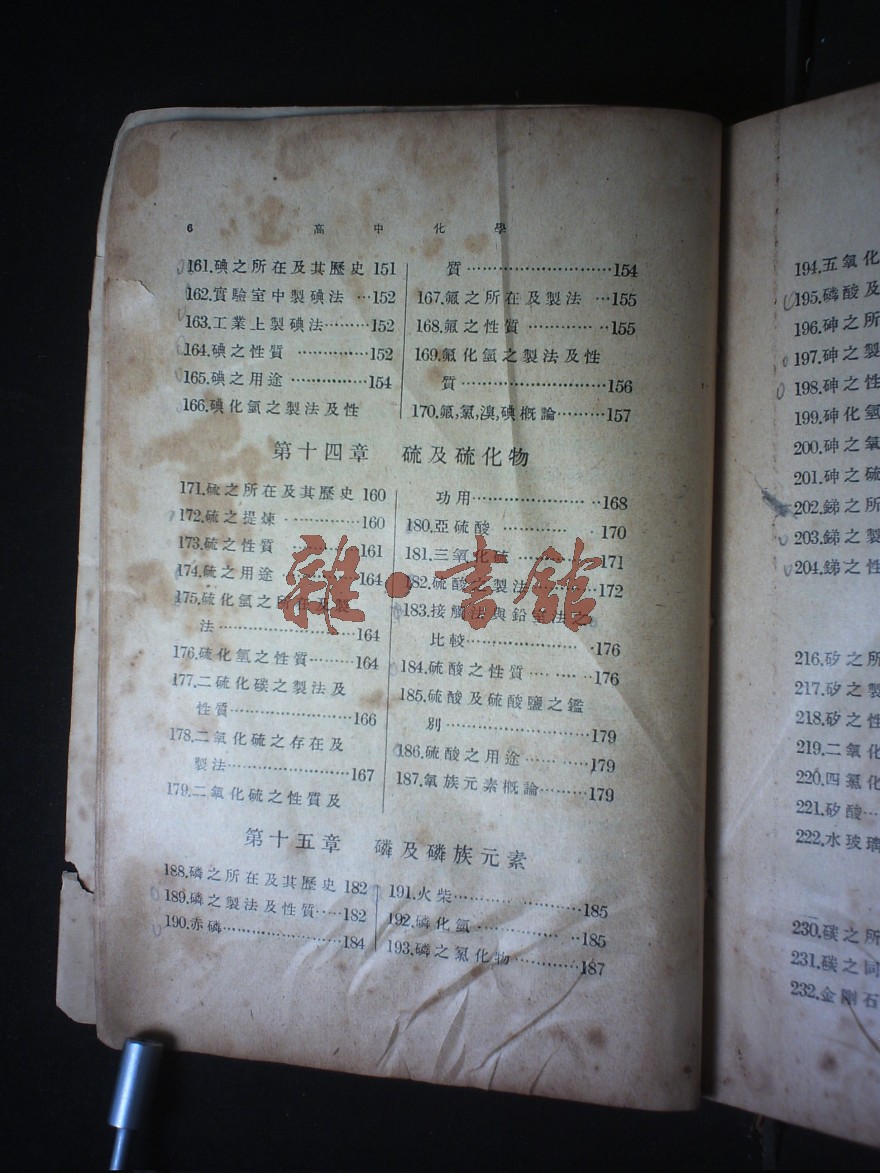 6 高中化學
161.碘之所在及其歷史 151
162.實驗室中製碘法 …152
163.工業上製碘法………152
164.碘之性質 …………152
165.碘之用途 ……………154
166.碘化氫之製法及性
質………………………154
167.氟之所在及製法 …155
168.氟之性質 …………155
169.氟化氫之製法及性
質………………………156
170.氟,氯,溴,碘概論………157
第十四章 硫及硫化物
171.硫之所在及其歷史 160
172.硫之提煉 …………160
173.硫之性質 …………161
174.硫之用途 …………164
175.硫化氫之所在及製
法………………………164
176.硫化氫之性質………164
177.二硫化碳之製法及
性質……………………166
178.二氧化硫之存在及
製法……………………167
179.二氧化硫之性質及
功用……………………168
180.亞硫酸 …………170
181.三氧化硫 …………171
182.硫酸之製法…………172
183.接觸法與鉛室法之
比較……………………176
184.硫酸之性質…………176
185.硫酸及硫酸鹽之鑑
別………………………179
186.硫酸之用途…………179
187.氧族元素概論………179
第十五章 磷及磷族元素
188.磷之所在及其歷史 182
189.磷之製法及性質……182
190.赤磷…………………184
191.火柴…………………185
192.磷化氫………………185
193.磷之氯化物…………187
雜·書館
194.五氧化
195.磷酸及
196.砷之所
197.砷之製
198.砷之性
199.砷化氫
200.砷之氧
201.砷之硫
202.銻之所
203.銻之製
204.銻之性
216.矽之所
217.矽之製
218.矽之性
219.二氧化
220.四氯化
221.矽酸…
222.水玻璃
230.碳之所
231.碳之同
232.金剛石